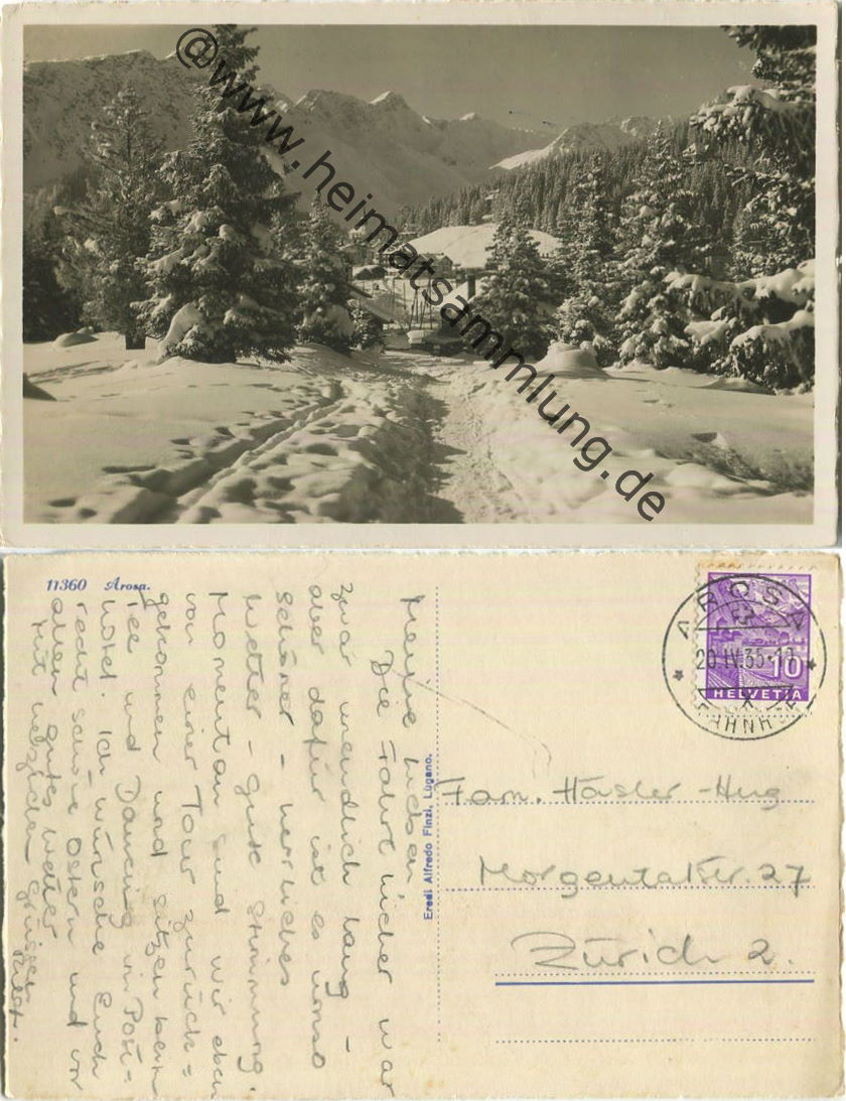 @www.heimatsammlung.de
11360 Arosa.
Meine Lieben
Die Fahrt hieher war
zwar unendlich lang –
aber dafür ist es umso
schöner – herrliches
Wetter – gute Stimmung.
Momentan sind wir eben
von einer Tour zurück-
gekommen und sitzen beim
Tee und Dancing im Post-
hotel. Ich wünsche Euch
recht schöne Ostern und vor
allem gutes Wetter
Mit herzlichen Grüssen
Eredi Alfredo Finzi, Lugano.
AROSA
20.IV.35
10
HELVETIA
Fam. Hasler-Hug
Morgentalstr. 27
Zürich 2.